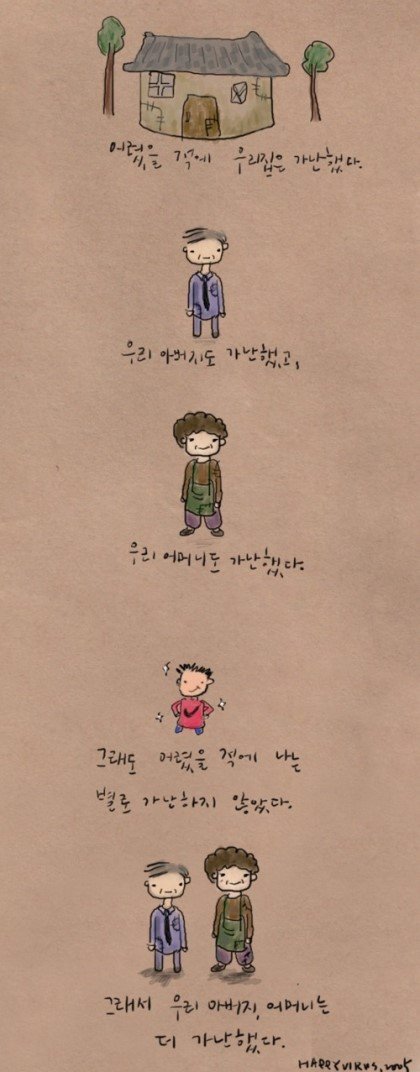 어렸을 적에 우리집은 가난했다.
우리 아버지도 가난했고,
우리 어머니도 가난했다.
그래도 어렸을 적에 나는
별로 가난하지 않았다.
그래서 우리 아버지, 어머니는
더 가난했다.
HAPPYVIRUS. 2005